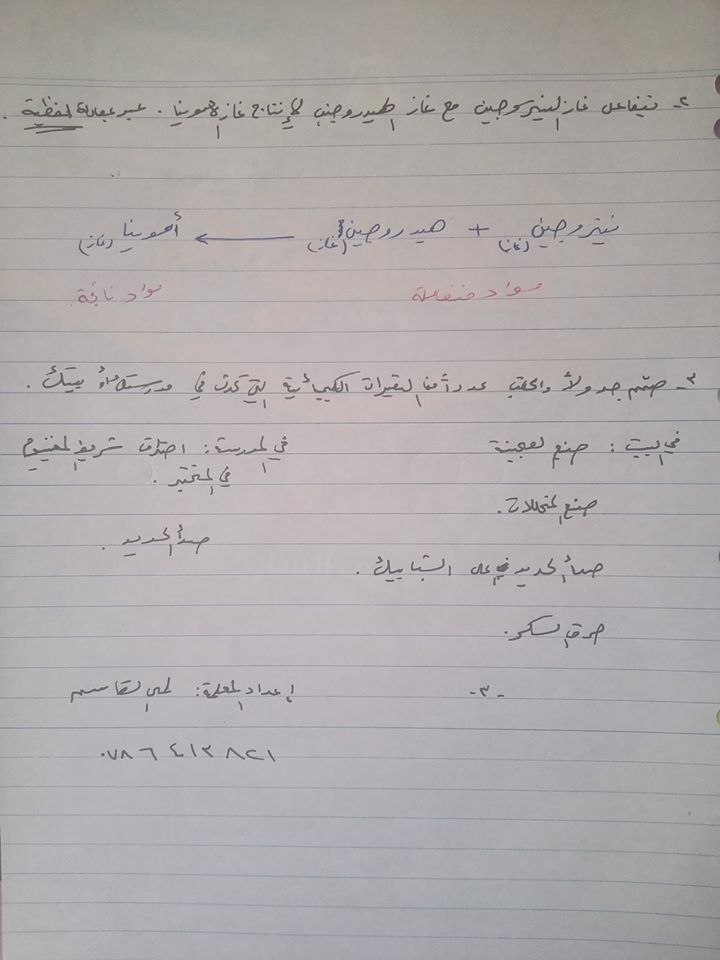 ٢- يتفاعل غاز النيتروجين مع غاز الهيدروجين لإنتاج غاز الأمونيا . عبر بمعادلة لفظية .
نيتروجين (غاز) + هيدروجين (غاز) ← أمونيا (غاز)
مواد متفاعلة مواد ناتجة
٣- صمّم جدولاً واكتب عدداً من التغيرات الكيميائية التي تحدث في مدرستك أو بيتك .
في البيت : صنع العجينة في المدرسة : احتراق شريط المغنيسيوم
في المختبر .
صنع المخللات .
صدأ الحديد .
صدأ الحديد على الشبابيك .
حرق السكر .
-٣- إعداد المعلمة : لمى القاسم
٠٧٨٦٤١٣٨٢١